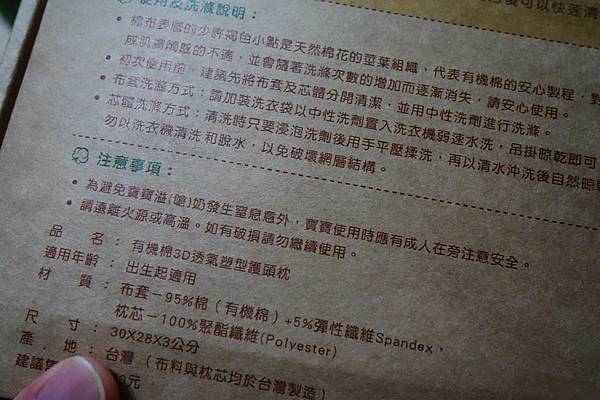 使用及洗滌說明：
可以快速清
• 棉布表層的少許褐色小點是天然棉花的莖葉組織，代表有機棉的安心製程，對
成肌膚觸感的不適，並會隨著洗滌次數的增加而逐漸消失，請安心使用。
• 初次使用前，建議先將布套及芯體分開清潔，並用中性洗劑進行洗滌。
• 布套洗滌方式：請加裝洗衣袋以中性洗劑置入洗衣機弱速水洗，吊掛晾乾即可
• 芯體洗滌方式：清洗時只要浸泡洗劑後用手平壓揉洗，再以清水沖洗後自然晾乾
勿以洗衣機清洗和脫水，以免破壞網層結構。
注意事項：
• 為避免寶寶溢(嗆)奶發生窒息意外，寶寶使用時應有成人在旁注意安全。
• 請遠離火源或高溫。如有破損請勿繼續使用。
品　　名：有機棉3D透氣塑型護頭枕
適用年齡：出生起適用
材　　質：布套－95%棉（有機棉）+5%彈性纖維Spandex，
枕芯－100%聚酯纖維(Polyester)
尺　　寸：30X28X3公分
產　　地：台灣（布料與枕芯均於台灣製造）
建議售 0元